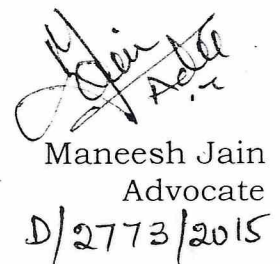 Jain
Adv
Maneesh Jain
Advocate
D/2773/2015